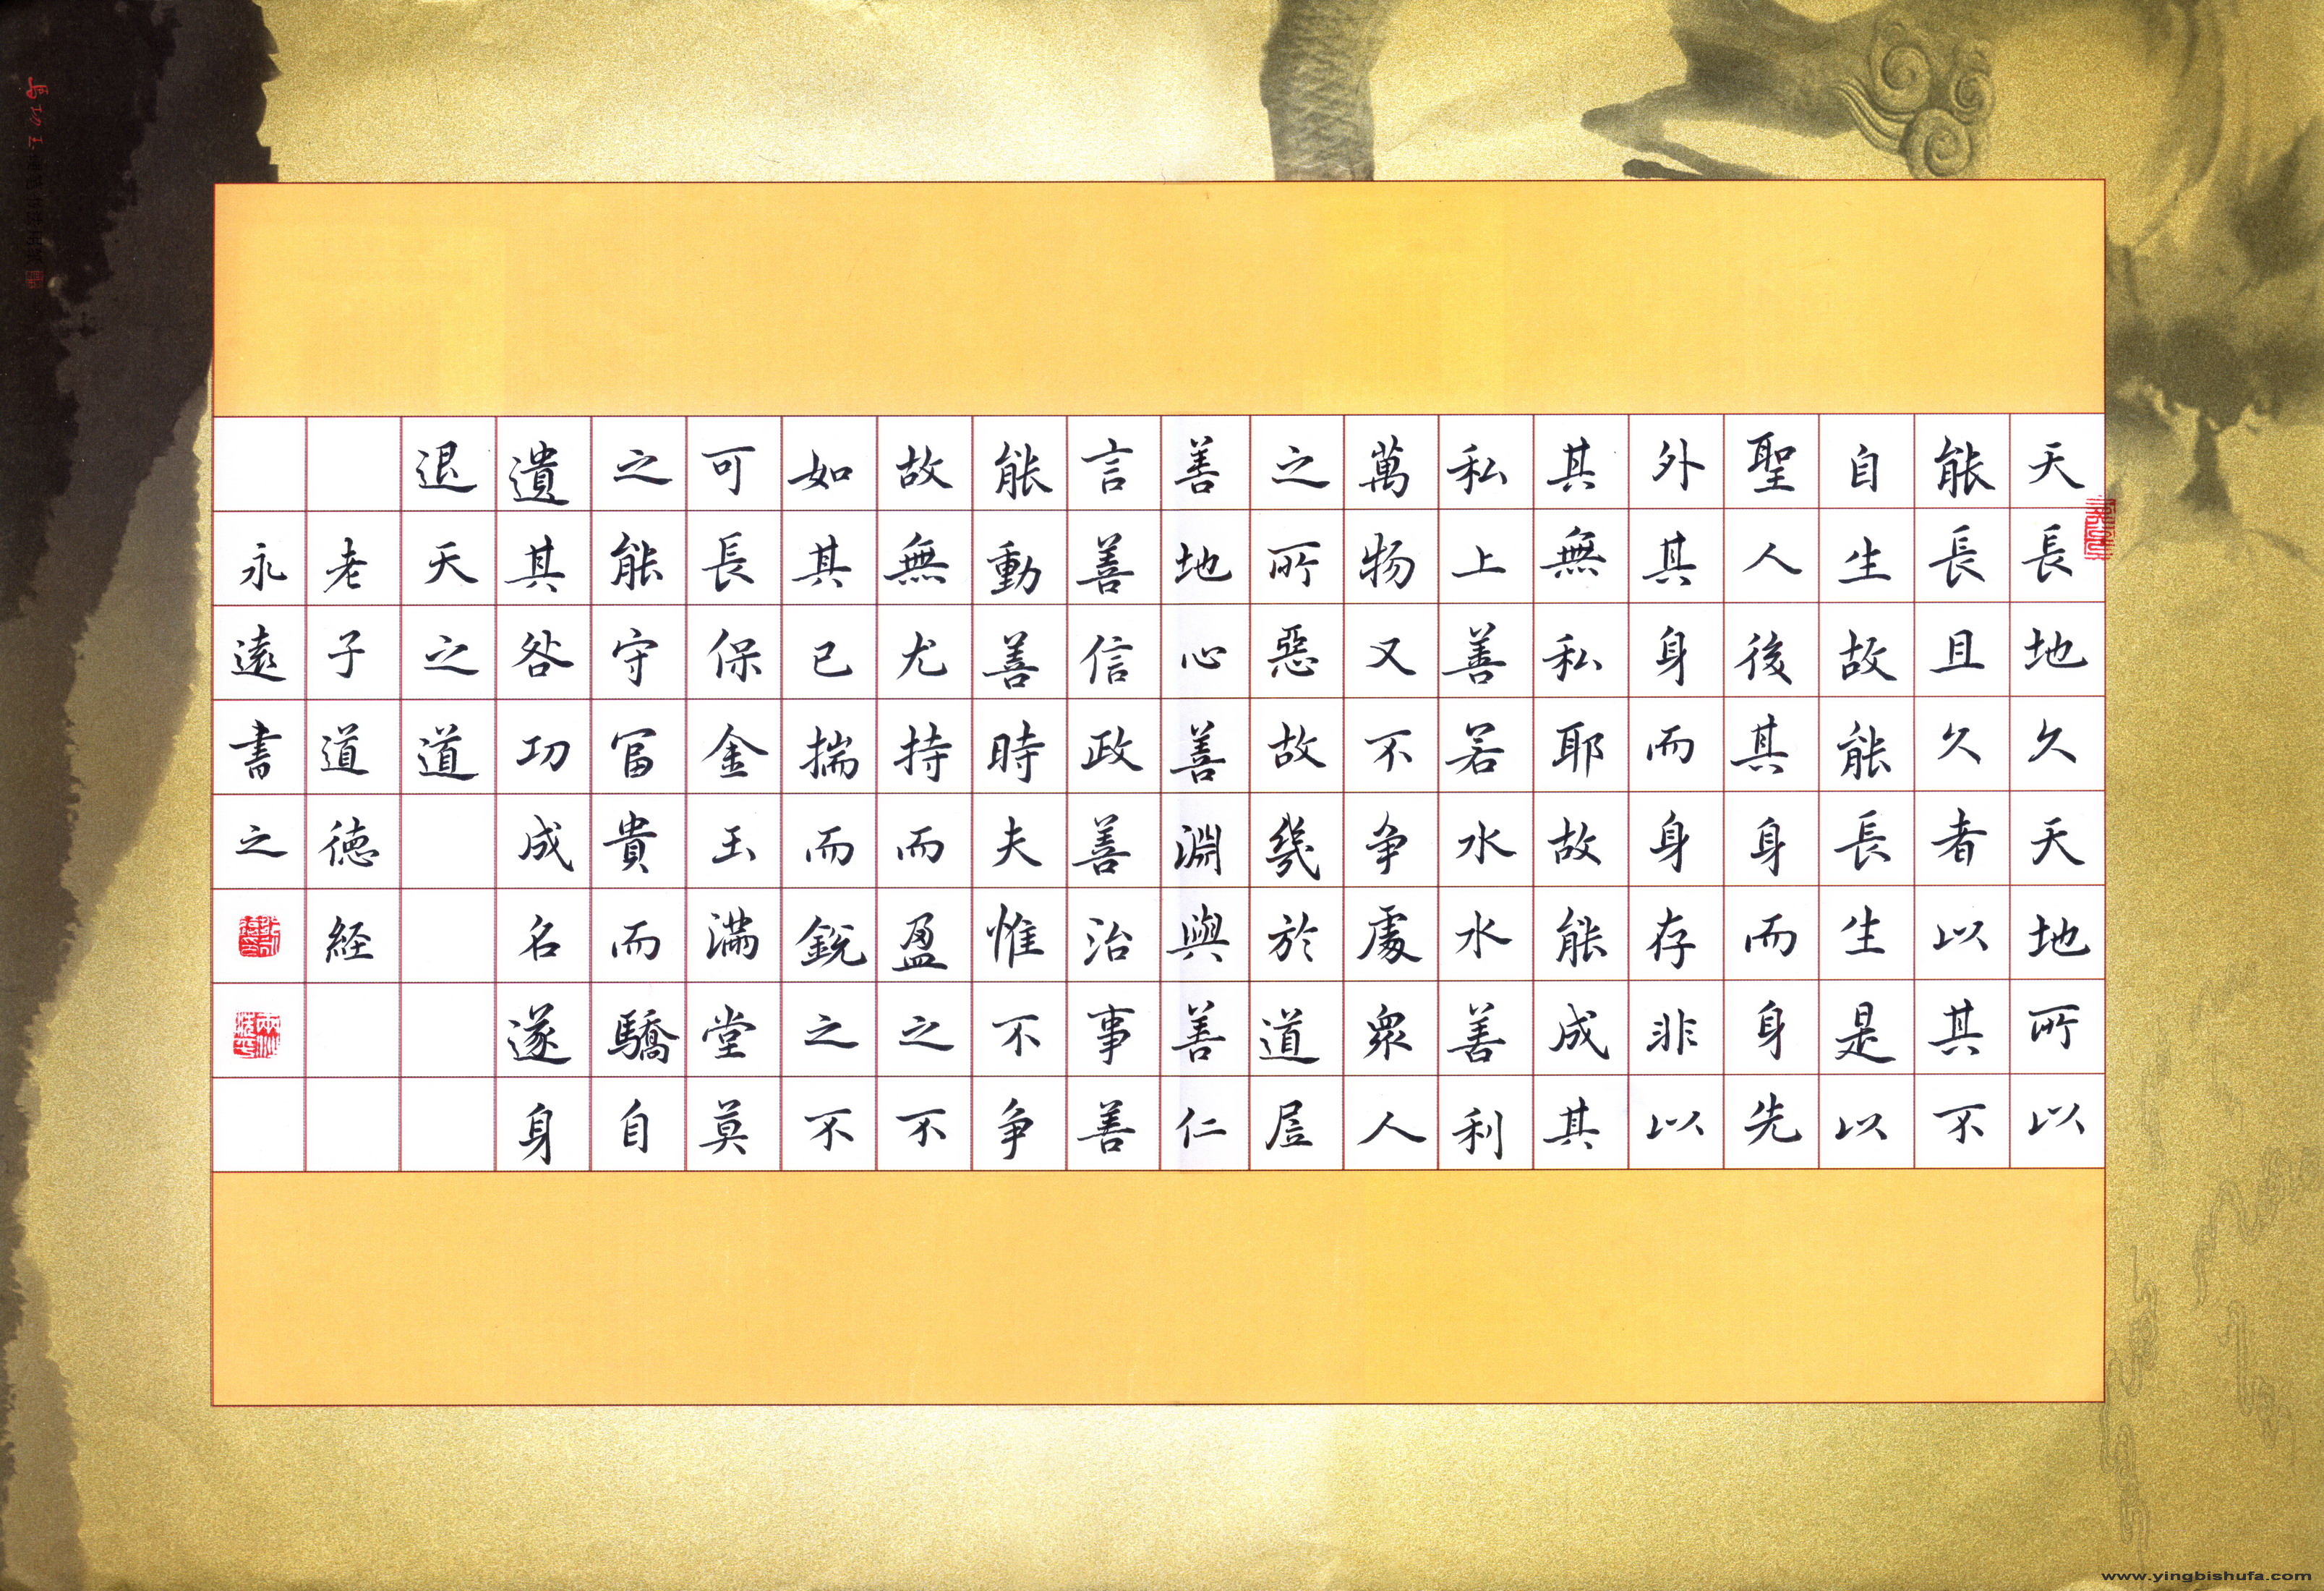 天長地久天地所以
能長且久者以其不
自生故能長生是以
聖人後其身而身先
外其身而身存非以
其無私耶故能成其
私上善若水水善利
萬物又不争處衆人
之所惡故幾於道居
善地心善淵與善仁
言善信政善治事善
能動善時夫惟不争
故無尤持而盈之不
如其已揣而銳之不
可長保金玉滿堂莫
之能守富貴而驕自
遺其咎功成名遂身
退天之道
老子道德経
永遠書之
www.yingbishufa.com